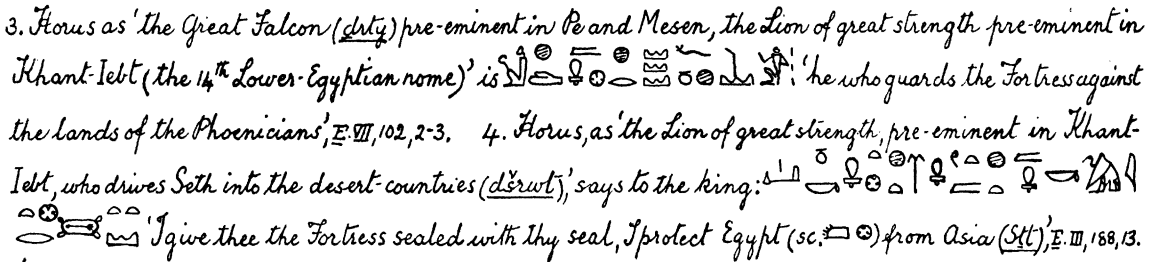 3. Horus as 'the Great Falcon (drty) pre-eminent in Pe and Mesen, the Lion of great strength pre-eminent in
Khant-Iebt (the 14th Lower-Egyptian nome)' is 'he who guards the Fortress against
the lands of the Phoenicians', E. VII, 102, 2-3. 4. Horus, as 'the Lion of great strength, pre-eminent in Khant-
Iebt, who drives Seth into the desert-countries (dšrwt),' says to the king:
'I give thee the Fortress sealed with thy seal, I protect Egypt (sc. ) from Asia (Stt)', E. III, 188, 13.